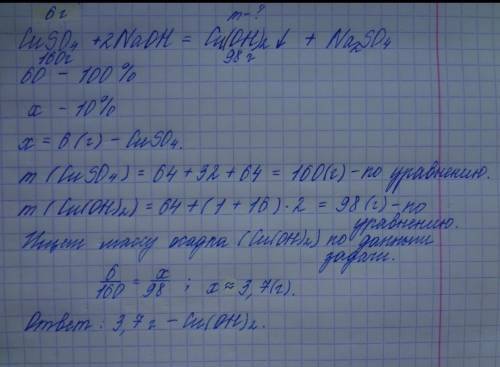 6 г m - ?
CuSO₄ + 2NaOH = Cu(OH)₂↓ + Na₂SO₄
160г 98 г
60 - 100 %
x - 10%
x = 6 (г) - CuSO₄.
m (CuSO₄) = 64 + 32 + 64 = 160(г) - по уравнению.
m (Cu(OH)₂) = 64 + (1 + 16) · 2 = 98 (г) - по уравнению.
Ищет массу осадка (Cu(OH)₂) по данным задачи.
6/160 = x/98 ; x ≈ 3,7(г).
Ответ: 3,7 г - Cu(OH)₂.